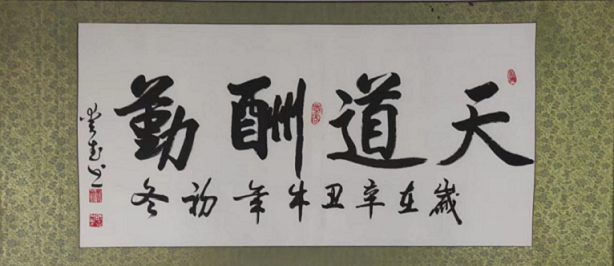 天道酬勤
歲在辛丑牛年初冬